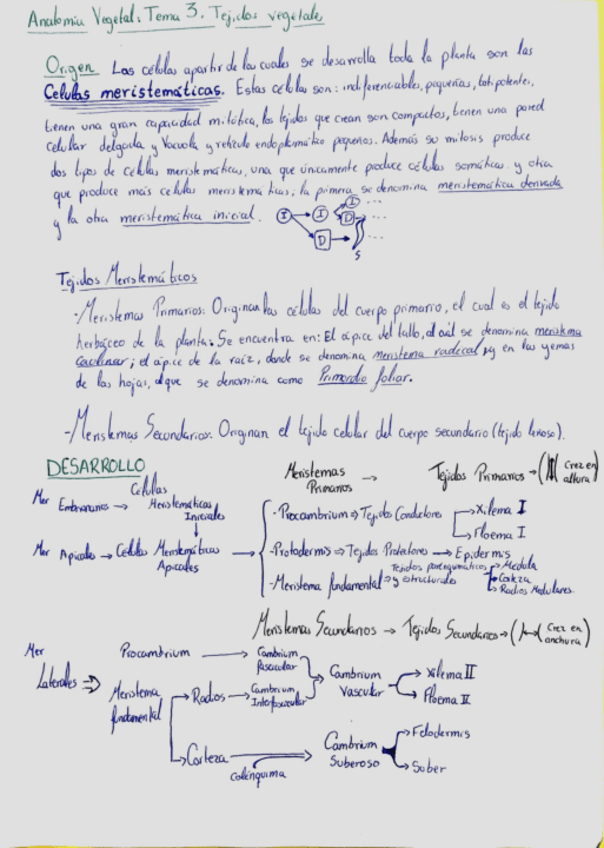 Anatomía Vegetal: Tema 3. Tejidos vegetales
Origen. Las células a partir de las cuales se desarrolla toda la planta son las
Celulas meristemáticas. Estas células son: indiferenciables, pequeñas, totipotentes,
tienen una gran capacidad mitótica, los tejidos que crean son compactos, tienen una pared
celular delgada y Vacuola y retículo endoplasmático pequeños. Además su mitosis produce
dos tipos de celulas meristemáticas, una que únicamente produce células somáticas y otra
que produce más celulas meristemáticas; la primera se denomina meristemática derivada
y la otra meristemática inicial.
I I I ...
D ...
D ...
S
Tejidos Meristemáticos
-Meristemas Primarios: Originan las células del cuerpo primario, el cual es el tejido
herbáceo de la planta. Se encuentra en: El ápice del tallo, al cuál se denomina meristema
caulinar; el ápice de la raíz, donde se denomina meristema radical y en las yemas
de las hojas, al que se denomina como Primordio foliar.
-Meristemas Secundarios: Originan el tejido celular del cuerpo secundario (tejido leñoso).
DESARROLLO
Meristemas Primarios → Tejidos Primarios → ( Crez en altura)
Mer Embrionarios → Celulas Meristemáticas Iniciales
Mer Apicales → Células Meristemáticas Apicales →
-Procambrium ⇒ Tejidos Conductores
Xilema I
Floema I
-Protodermis ⇒ Tejidos Protectores → Epidermis
-Meristema fundamental ⇒ Tejidos parenquimáticos y estructurales
→ Médula
→ Corteza
→ Radios Medulares.
Meristemas Secundarios → Tejidos Secundarios → ( Crez en anchura)
Mer Laterales ⇒
Procambrium → Cambrium Fascicular
Meristema fundamental
→ Radios → Cambrium Interfascicular
Cambrium Vascular
→ Xilema II
→ Floema II
→ Corteza
colénquima
Cambrium Suberoso
→ Felodermis
→ Suber